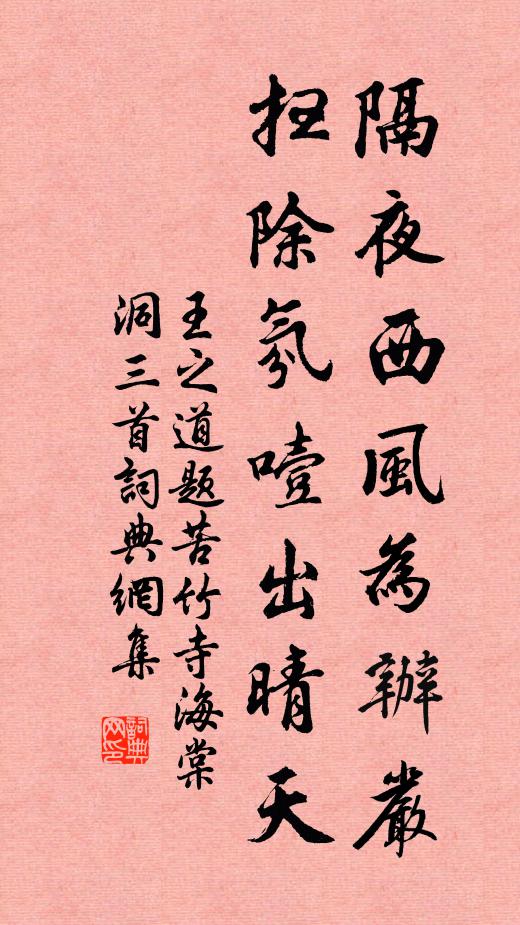 隔夜西風為辦嚴
扫除氛曀出晴天
王之道题苦竹寺海棠
洞三首詞典網集
詞典
网印